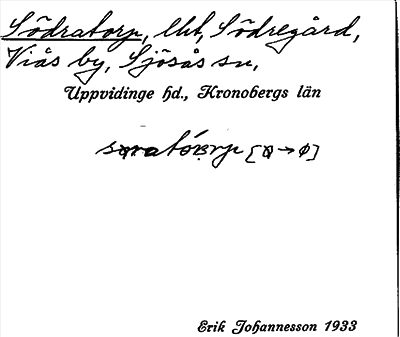 Södratorp, lht, Södregård,
Viås by, Sjösås sn,
Uppvidinge hd., Kronobergs län
[ɑ → ø]
Erik Johannesson 1933